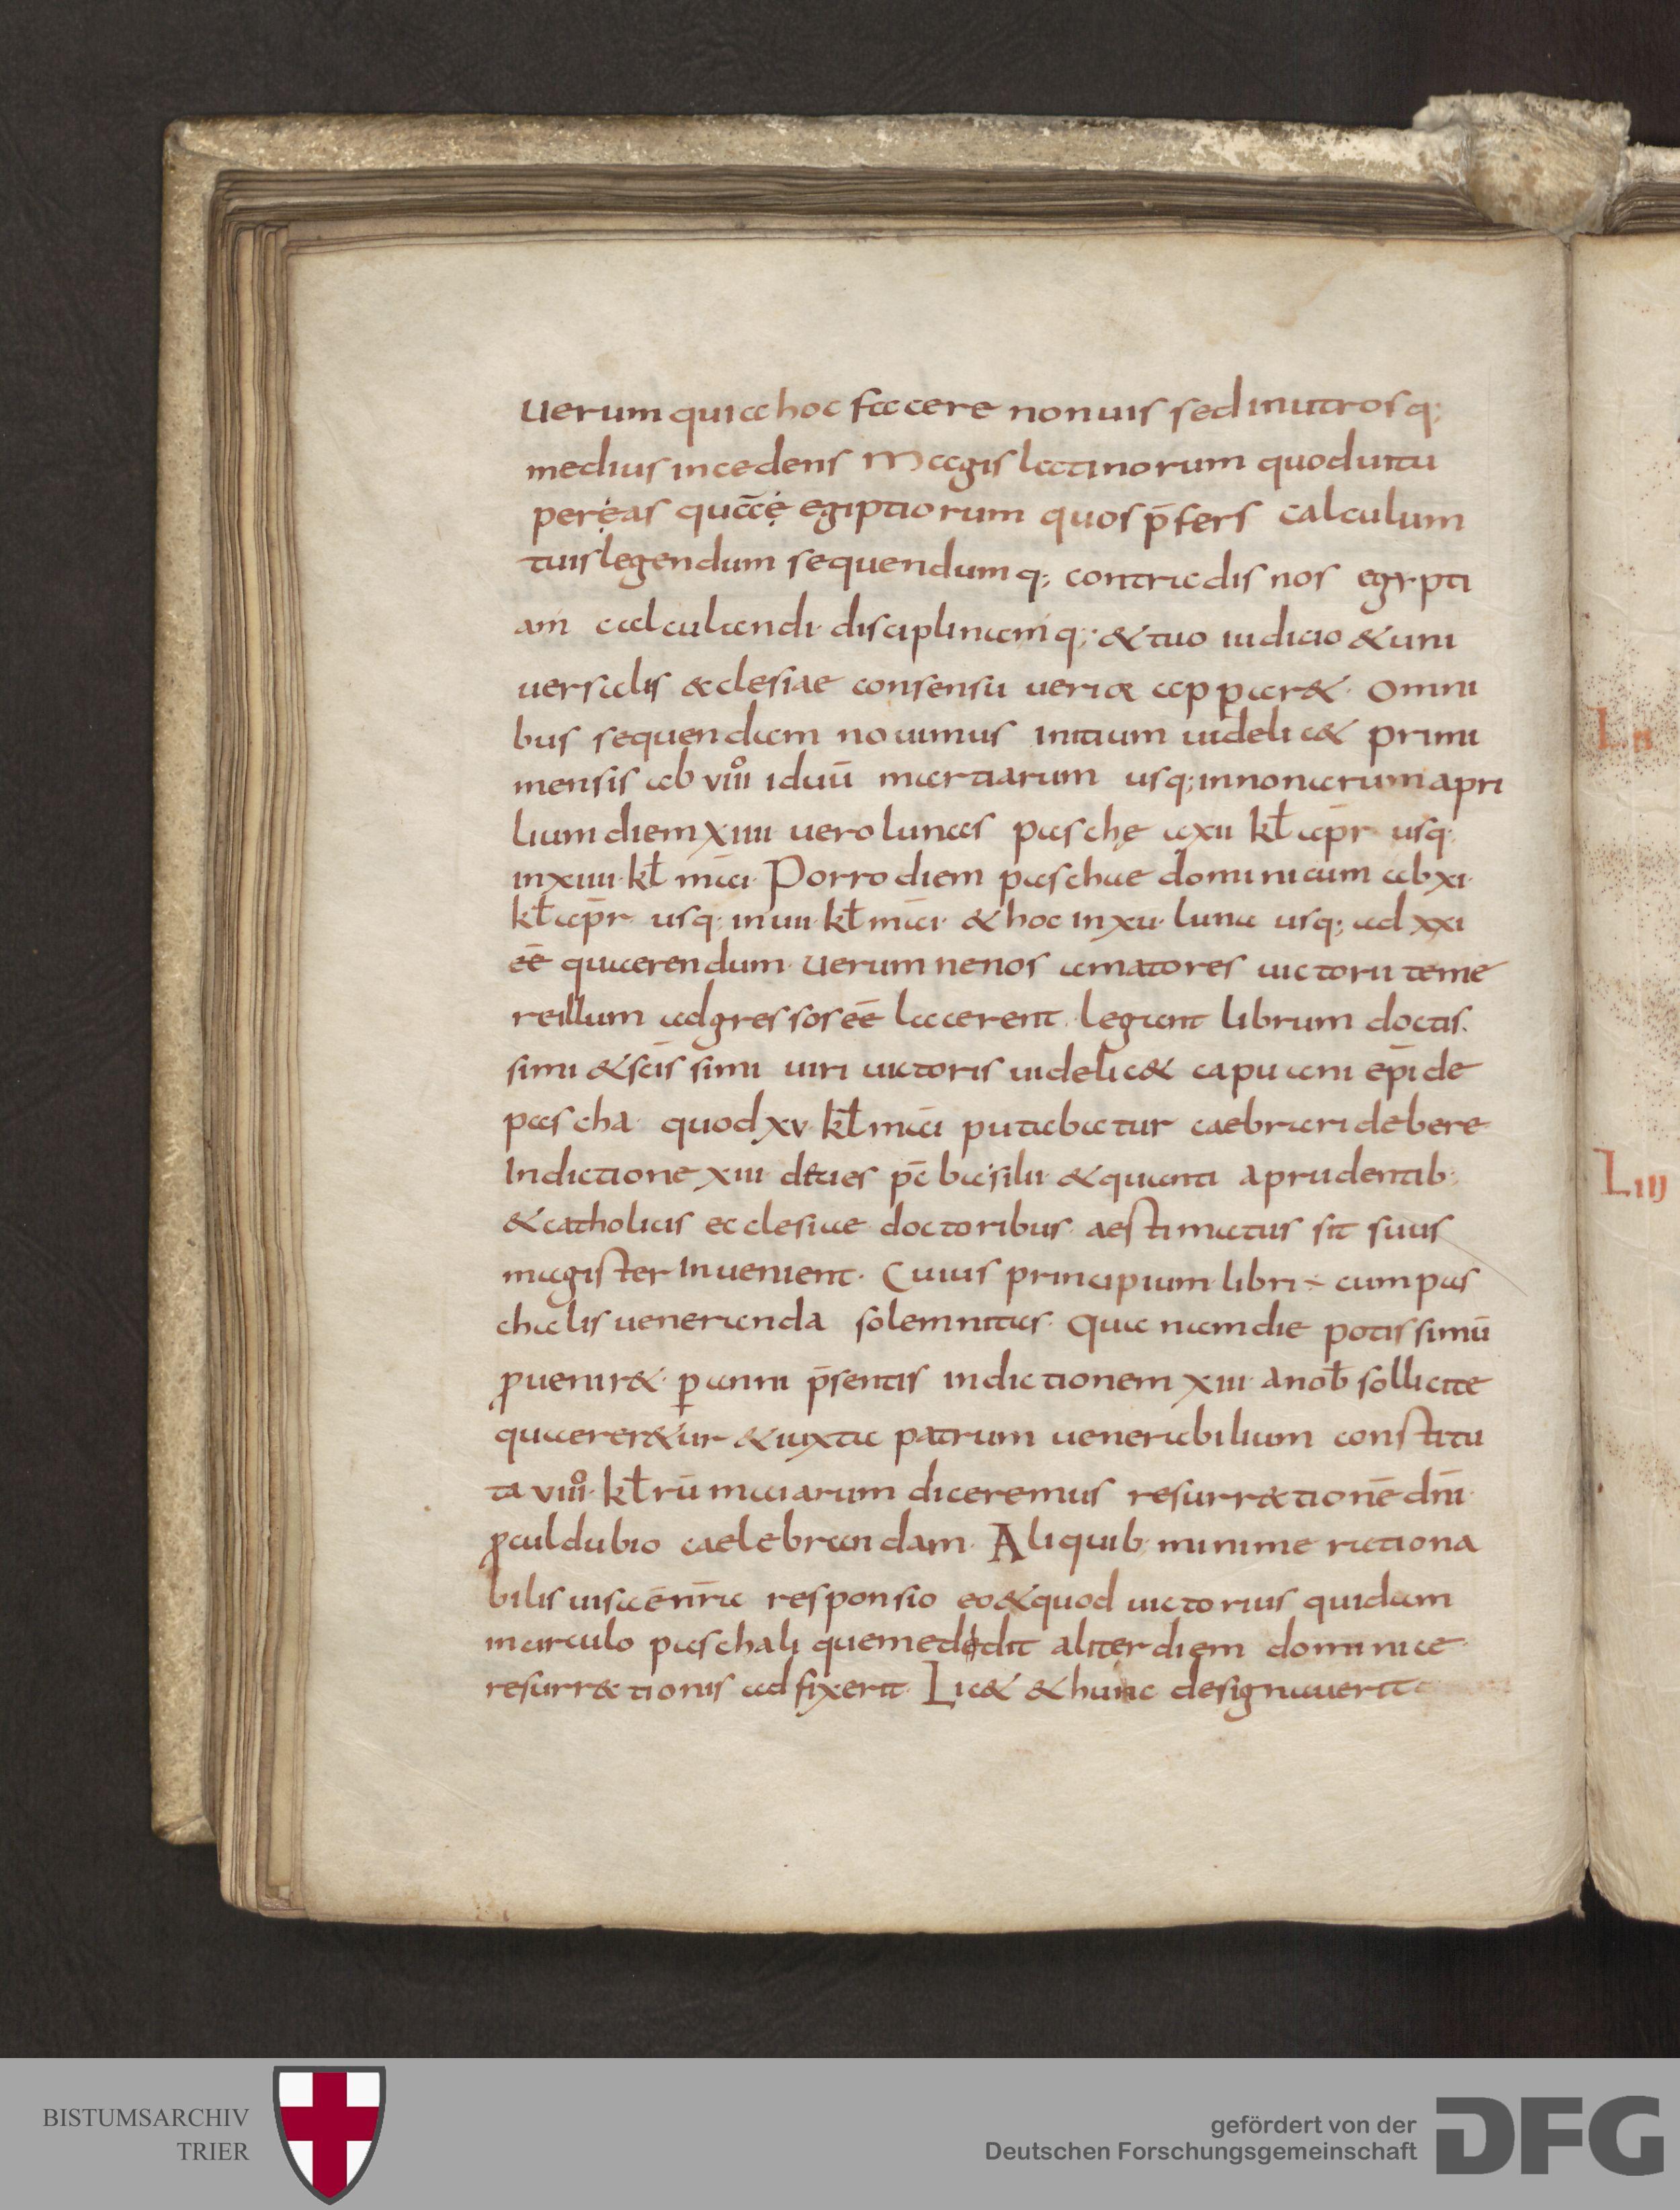 uerum quia hoc facere nonuis sed inutrosq;
medius incedens Magis latinorum quod uitu
pereas quāę egiptiorum quos p̄fers calculum
tuis legendum sequendumq; contradis nos egypti
am calculandi disciplinamq; & tuo iudicio & uni
uersalis &clesiae consensu ueriorẽ apparer& omni
bus sequendam nouimus initium uidelic& primi
mensis ab viii iduū martiarum usq; innonarum apri
lium diem xiiii uero lunaes paschę axii kł apr̄ usq;
inxiiii kł māi Porro diem paschae dominicum ab xi
kł apr̄ usq; in uii kł māi & hoc in xu luna usq; ad xxi
ēē quaerendum uerum nenos amatores uictorii teme
reillum adgressos ēē lacerent legant librum doctis
simi & sc̄issimi uiri uictoris uidelic& capuani ep̄i de
pascha quod xv kł māi putabatur caebrari debere
Indictione xiii dt̄ies pc̄ basilii & quanti aprudentib;
& catholicis ecclesiae doctoribus aestimatus sit suus
magister Inuenient Cuius principium libri ÷ cum pas
chalis ueneranda solemnitas Quae namdie potissimū
ꝓuenir& ꝑ anni p̄sentis indictionem xiii anob̄ sollicite
quaerer&ur & iuxta patrum uenerabilium constitu
ta viii kłrū maiarum diceremus resurr&tionē dn̄i
ꝓculdubio caelebrandam Aliquib; minime rationa
bilis uisaē nr̄a responsio eo & quod uictorius quidam
incirculo paschali quem edidit aliter diem dominice
resurr&tionis adfixerit Lic& & hunc designauerit
Lii
Liij
BISTUMSARCHIV
TRIER
gefördert von der
Deutschen Forschungsgemeinschaft
DFG